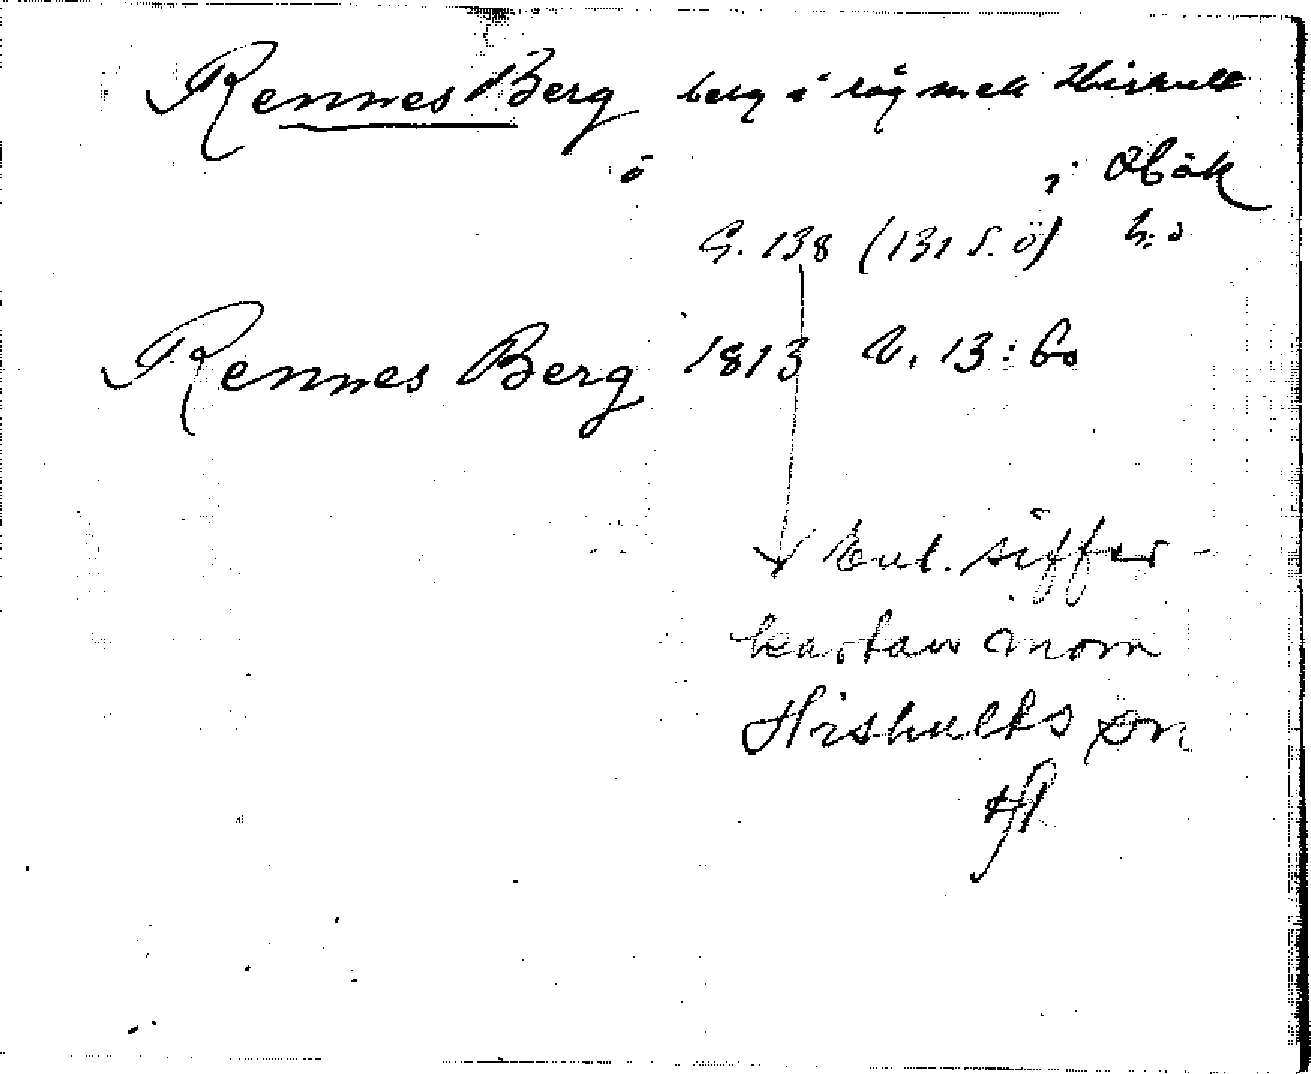 Rennes Berg berg i råg mell Hishult
o i Obök
G. 138 (131 S. Ö)
Rennes Berg 1813 U. 13:60
Enl. siffer-
kartan inom
Hishults sn